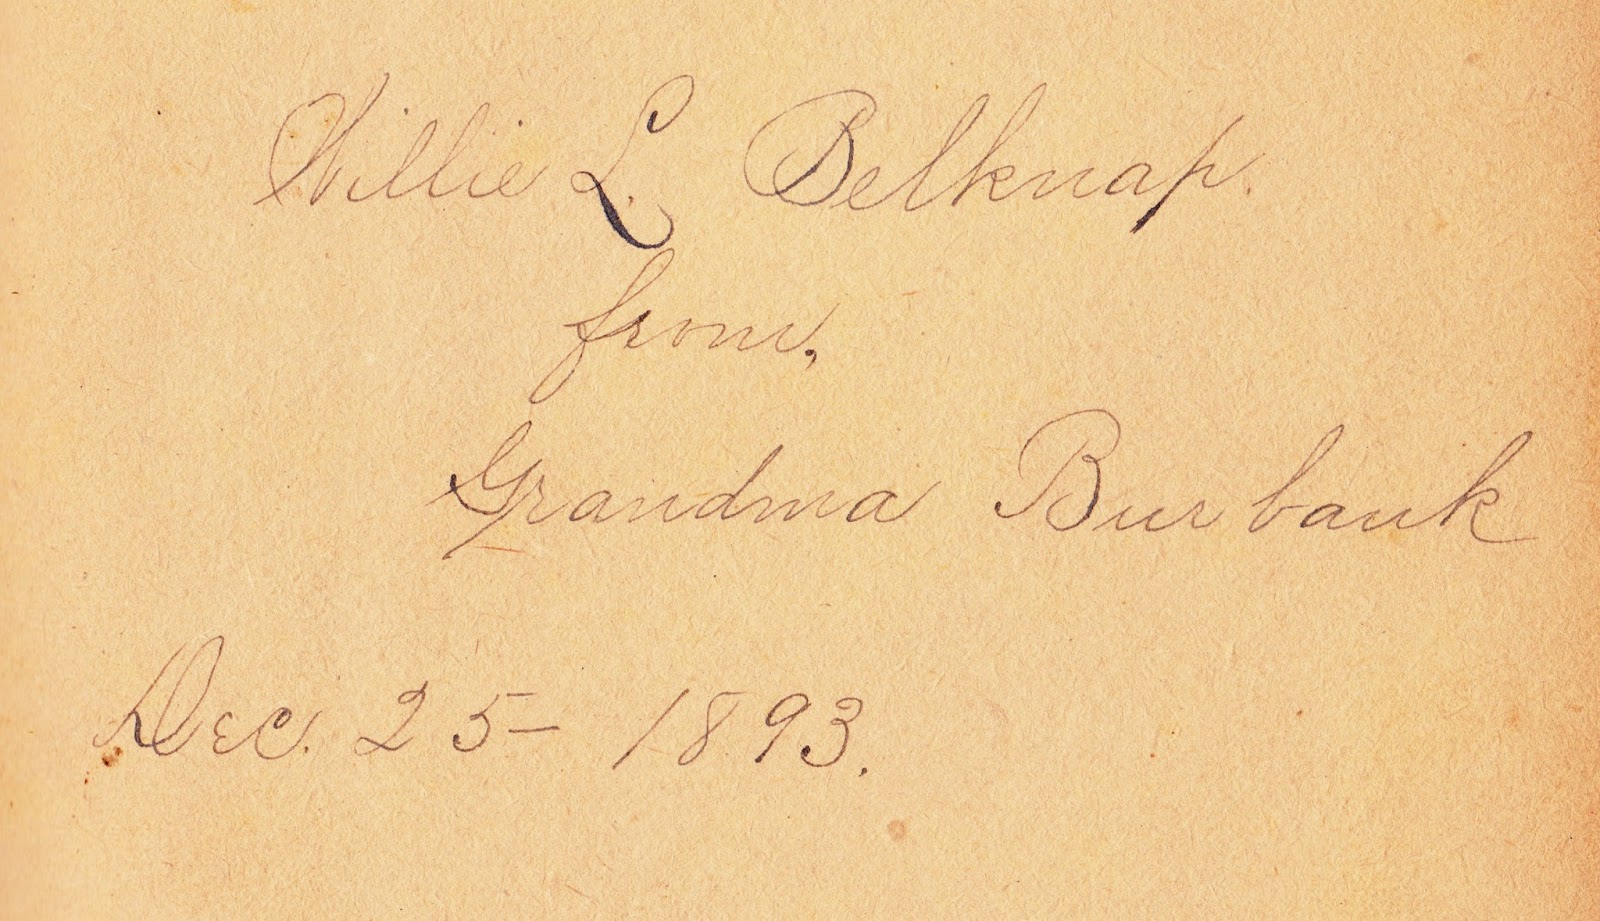 Willie L. Belknap.
from,
Grandma Burbank
Dec. 25- 1893.